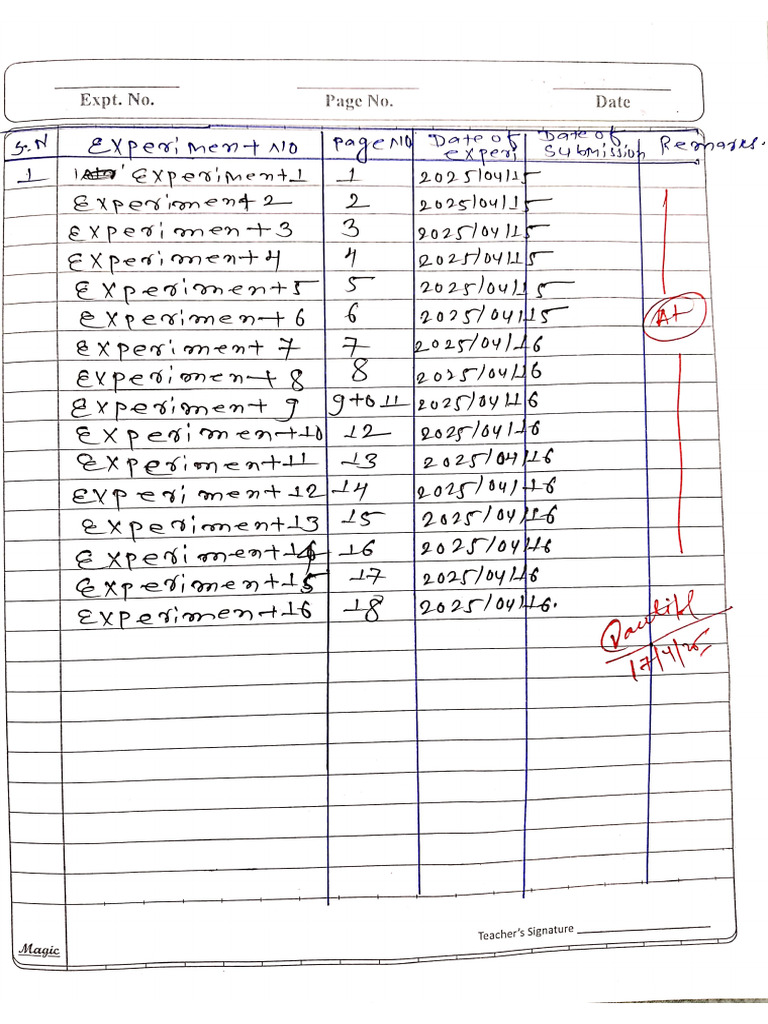 Expt. No. Page No. Date
S.N Experiment No Page No Date of experi Date of submission Remarks.
1 Experiment 1 1 2025/04/15
Experiment 2 2 2025/04/15
Experiment 3 3 2025/04/15
Experiment 4 4 2025/04/15
Experiment 5 5 2025/04/15
Experiment 6 6 2025/04/15 A+
Experiment 7 7 2025/04/16
Experiment 8 8 2025/04/16
Experiment 9 9 to 11 2025/04/16
Experiment 10 12 2025/04/16
Experiment 11 13 2025/04/16
Experiment 12 14 2025/04/16
Experiment 13 15 2025/04/16
Experiment 14 16 2025/04/16
Experiment 15 17 2025/04/16
Experiment 16 18 2025/04/16.
17/4/25
Teacher's Signature
Magic